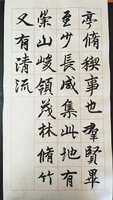 亭脩稧事也羣賢畢
至少長咸集此地有
崇山峻領茂林脩竹
又有清流